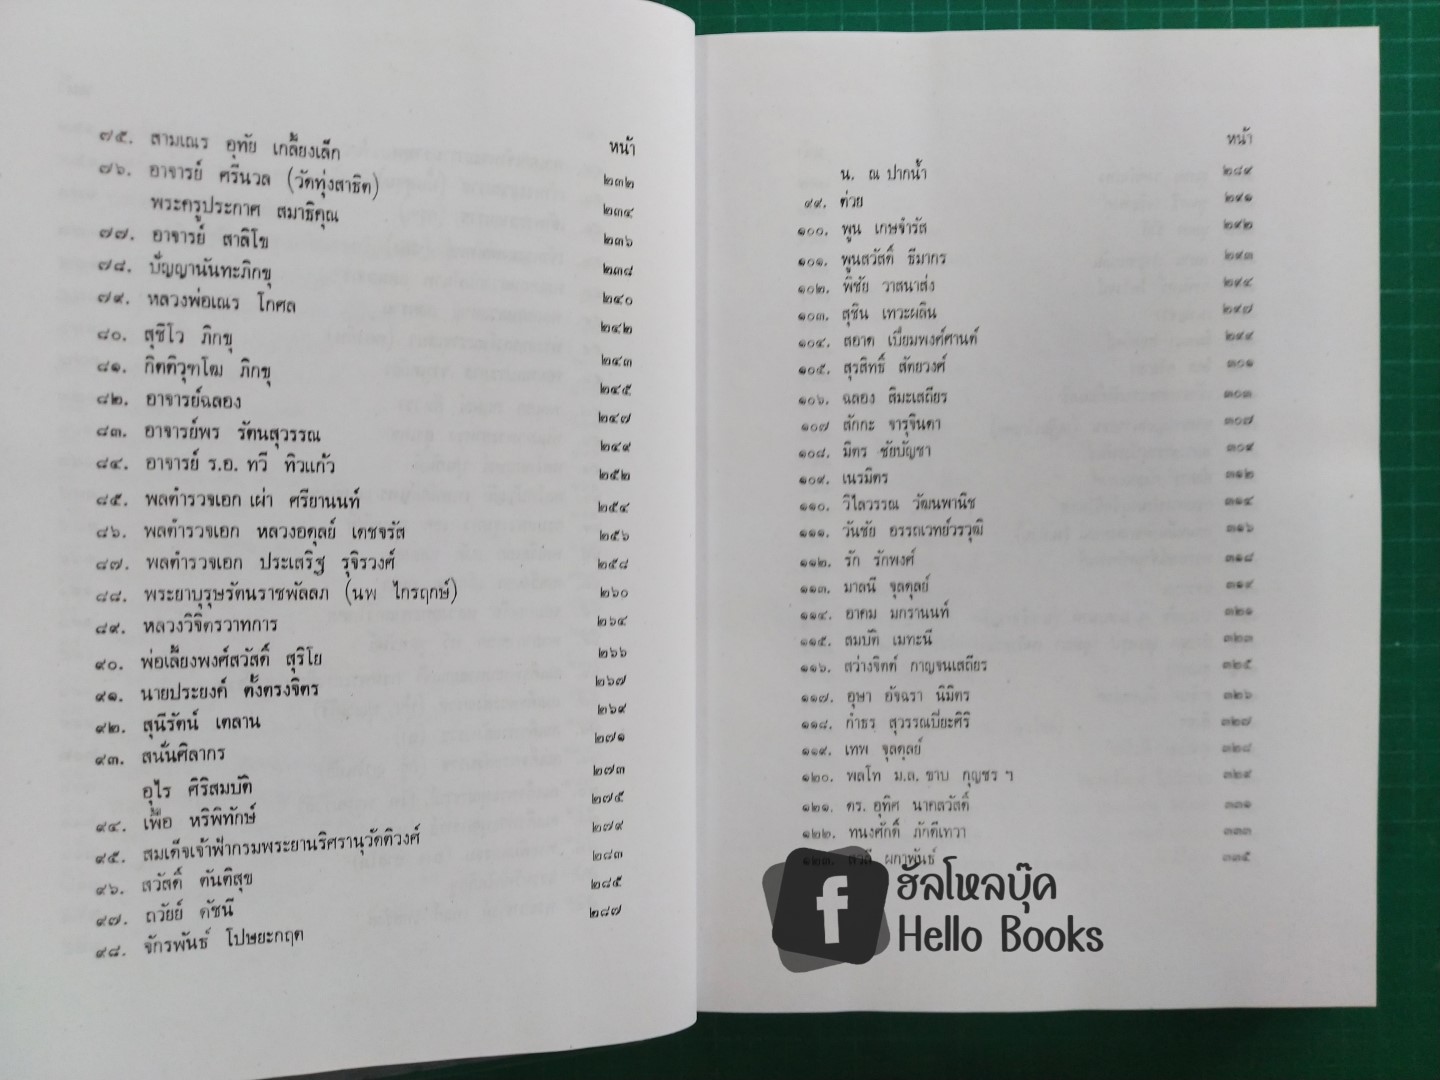 หน้า
๗๕. สามเณร อุทัย เกลี้ยงเล็ก ๒๓๒
๗๖. อาจารย์ ศรีนวล (วัดทุ่งสาธิต) ๒๓๔
พระครูประกาศ สมาธิคุณ ๒๓๖
๗๗. อาจารย์ สาลิโข ๒๓๘
๗๘. ปัญญานันทะภิกขุ ๒๔๐
๗๙. หลวงพ่อเณร โกศล ๒๔๒
๘๐. สุชิโว ภิกขุ ๒๔๓
๘๑. กิตติวุฑโฒ ภิกขุ ๒๔๕
๘๒. อาจารย์ฉลอง ๒๔๗
๘๓. อาจารย์พร รัตนสุวรรณ ๒๔๙
๘๔. อาจารย์ ร.อ. ทวี ทิวแก้ว ๒๕๒
๘๕. พลตำรวจเอก เผ่า ศรียานนท์ ๒๕๔
๘๖. พลตำรวจเอก หลวงอดุลย์ เดชจรัส ๒๕๖
๘๗. พลตำรวจเอก ประเสริฐ รุจิรวงศ์ ๒๕๘
๘๘. พระยาบุรุษรัตนราชพัลลภ (นพ ไกรฤกษ์) ๒๖๐
๘๙. หลวงวิจิตรวาทการ ๒๖๔
๙๐. พ่อเลี้ยงพงศ์สวัสดิ์ สุริโย ๒๖๖
๙๑. นายประยงค์ ตั้งตรงจิตร ๒๖๗
๙๒. สุนีรัตน์ เตลาน ๒๖๙
๙๓. สนั่นศิลากร ๒๗๑
อุไร ศิริสมบัติ ๒๗๓
๙๔. เพื่อ หริพิทักษ์ ๒๗๕
๙๕. สมเด็จเจ้าฟ้ากรมพระยานริศรานุวัดติวงศ์ ๒๗๙
๙๖. สวัสดิ์ ตันติสุข ๒๘๓
๙๗. ถวัยย์ ดัชนี ๒๘๕
๙๘. จักรพันธ์ โปษยะกฤต ๒๘๗
หน้า
น. ณ ปากน้ำ ๒๘๙
๙๙. ต่วย ๒๙๑
๑๐๐. พูน เกษจำรัส ๒๙๒
๑๐๑. พูนสวัสดิ์ ธีมากร ๒๙๓
๑๐๒. พิชัย วาสนาส่ง ๒๙๔
๑๐๓. สุชิน เทวะผลิน ๒๙๗
๑๐๔. สอาด เปี่ยมพงศ์ศานต์ ๒๙๙
๑๐๕. สุรสิทธิ์ สัตยวงศ์ ๓๐๑
๑๐๖. ฉลอง สิมะเสถียร ๓๐๓
๑๐๗ ลักกะ จารุจินดา ๓๐๗
๑๐๘. มิตร ชัยบัญชา ๓๐๙
๑๐๙. เนรมิตร ๓๑๒
๑๑๐. วิไลวรรณ วัฒนพานิช ๓๑๔
๑๑๑. วันชัย อรรถเวทย์วรวุฒิ ๓๑๖
๑๑๒. รัก รักพงศ์ ๓๑๘
๑๑๓. มาลนี จุลดุลย์ ๓๑๙
๑๑๔. อาคม มกรานนท์ ๓๒๑
๑๑๕. สมบัติ เมทะนี ๓๒๓
๑๑๖. สว่างจิตต์ กาญจนเสถียร ๓๒๕
๑๑๗. อุษา อัจฉรา นิมิตร ๓๒๖
๑๑๘. กำธร สุวรรณปิยะศิริ ๓๒๗
๑๑๙. เทพ จุลดุลย์ ๓๒๘
๑๒๐. พลโท ม.ล. ขาบ กุญชร ฯ ๓๒๙
๑๒๑. ดร. อุทิศ นาคสวัสดิ์ ๓๓๑
๑๒๒. ทนงศักดิ์ ภักดีเทวา ๓๓๓
๑๒๓. สวลี ผกาพันธ์ ๓๓๕
ฮัลโหลบุ๊ค
Hello Books